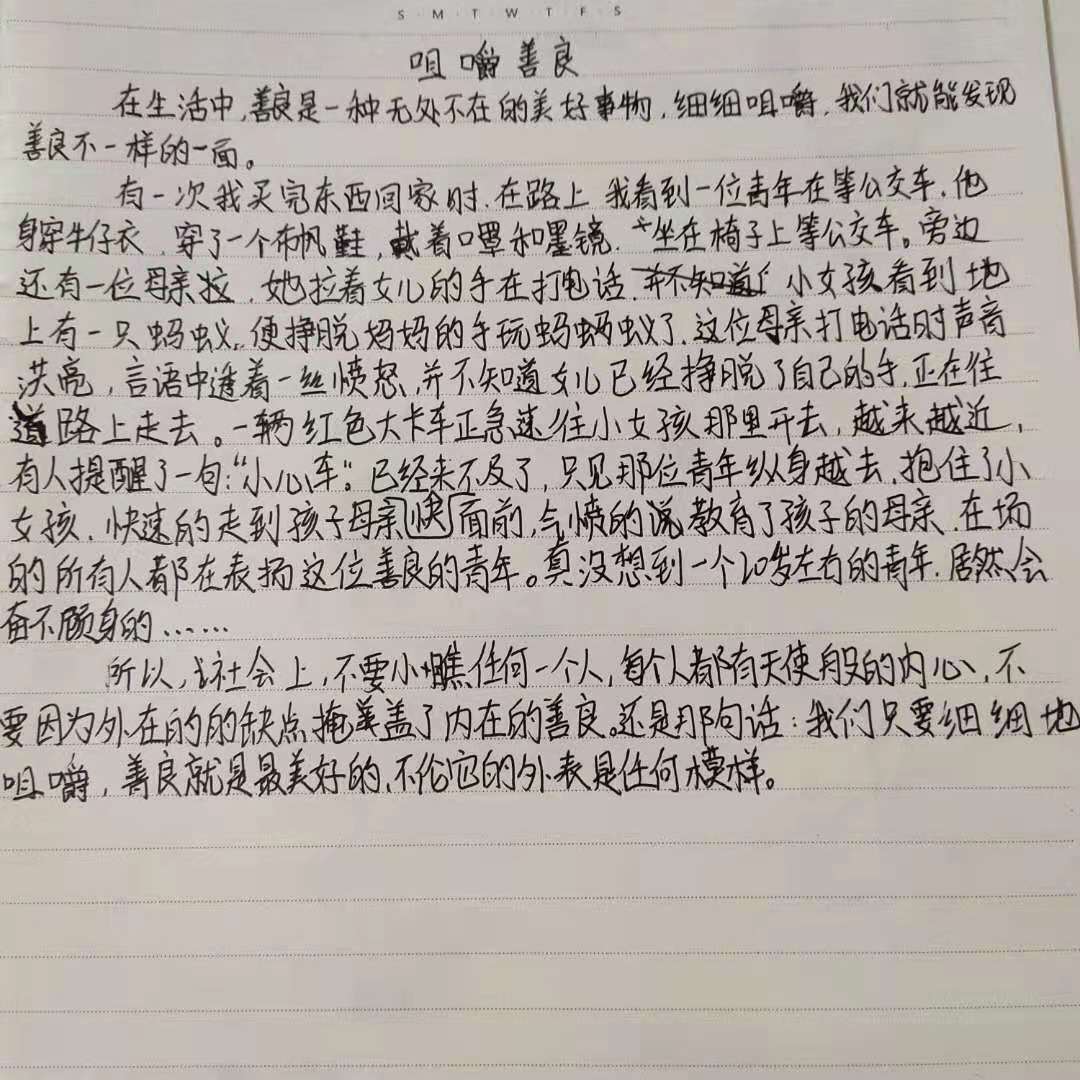 S M T W T F S
咀嚼善良
在生活中,善良是一种无处不在的美好事物,细细咀嚼,我们就能发现
善良不一样的一面。
有一次我买完东西回家时,在路上 我看到一位青年在等公交车,他
身穿牛仔衣,穿了一个布帆鞋,戴着口罩和墨镜,坐在椅子上等公交车。旁边
还有一位母亲,她拉着女儿的手在打电话,小女孩看到地
上有一只蚂蚁,便挣脱妈妈的手玩蚂蚁了,这位母亲打电话时声音
洪亮,言语中透着一丝愤怒,并不知道女儿已经挣脱了自己的手,正在往
道路上走去。一辆红色大卡车正急速往小女孩那里开去,越来越近,
有人提醒了一句:“小心车”已经来不及了,只见那位青年纵身越去,抱住了小
女孩,快速的走到孩子母亲面前,气愤的说教育了孩子的母亲,在场
的所有人都在表扬这位善良的青年。真没想到一个20岁左右的青年,居然会
奋不顾身的……
所以,社会上,不要小瞧任何一个人,每个人都有天使般的内心,不
要因为外在的的缺点掩盖了内在的善良。还是那句话:我们只要细细地
咀嚼,善良就是最美好的,不伦它的外表是任何模样。